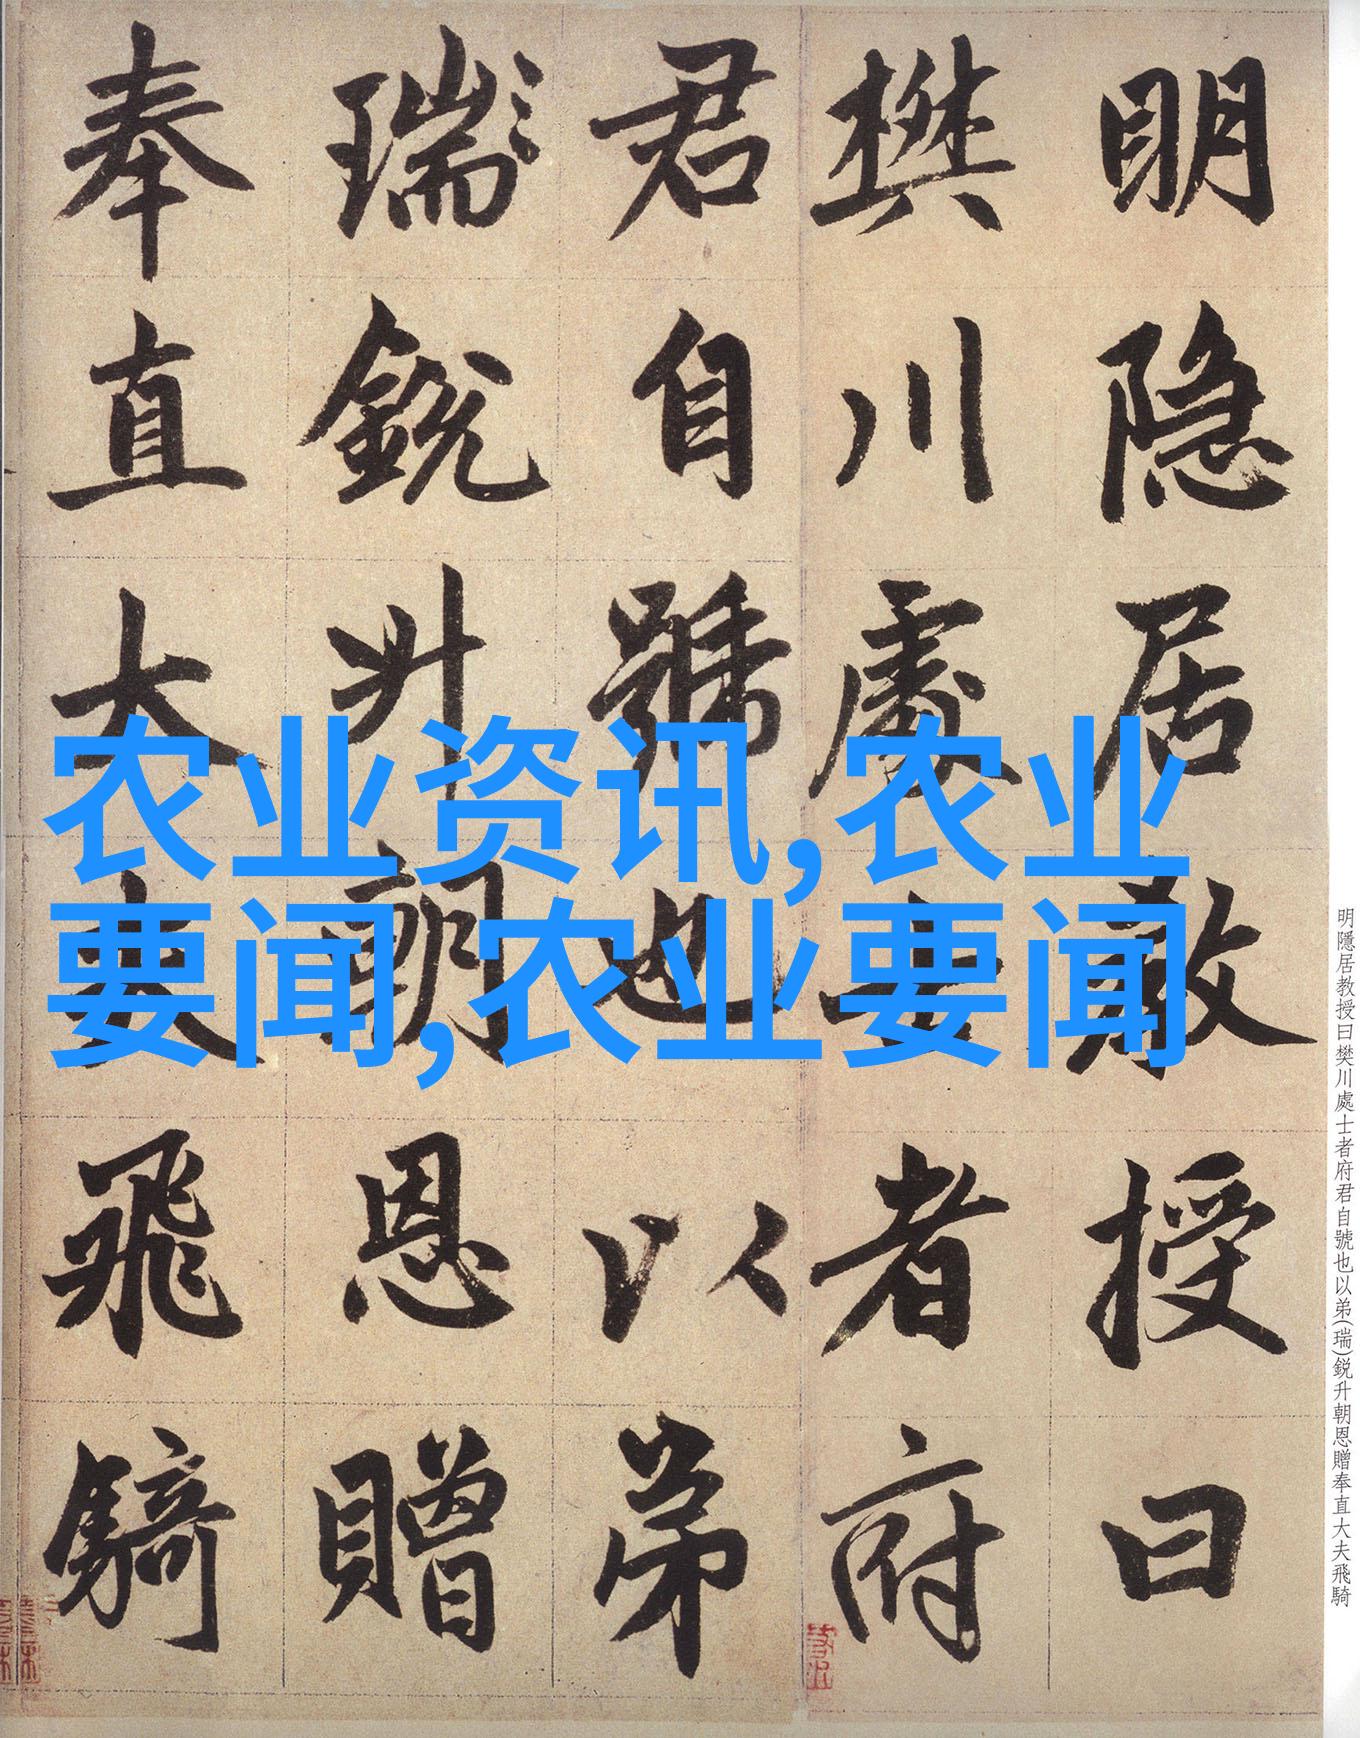 明隐居教授曰
樊川處士者府
君自號也以弟
瑞銳升朝恩贈
奉直大夫飛騎
农业资讯,农业
要闻,农业要闻
明隱居教授曰樊川處士者府君自號也以弟(瑞)鋭升朝恩贈奉直大夫飛騎